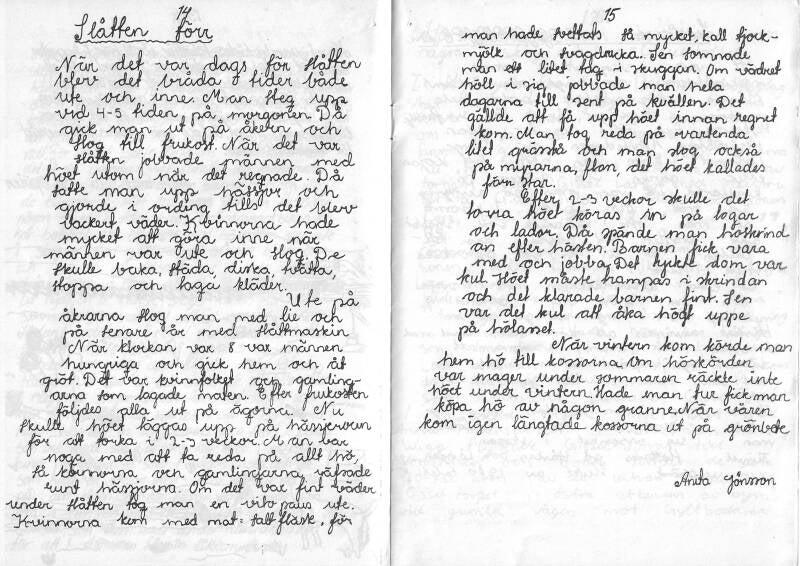 14
Slåtten förr
När det var dags för slåtten
blev det bråda tider både
ute och inne. Man steg upp
vid 4-5 tiden på morgonen. Då
gick man ut på åkern och
slog till frukost. När det var
slåtten jobbade männen med
höet utom när det regnade. Då
satte man upp hässjor och
gjorde i ording tills det blev
vackert väder. Kvinnorna hade
mycket att göra inne när
männen var ute och slog. De
skulle baka, städa, diska, tvätta,
stoppa och laga kläder.
Ute på
åkrarna slog man med lie och
på senare år med slåttmaskin
När klockan var 8 var männen
hungriga och gick hem och åt
gröt. Det var kvinnfolket och gamling-
arna som lagade maten. Efter frukosten
följdes alla ut på ägorna. Nu
skulle höet läggas upp på hässjorna
för att torka i 2-3 veckor. Man var
noga med att ta reda på allt hö,
så kvinnorna och gamlingarna räfsade
runt hässjorna. Om det var fint väder
under slåtten tog man en vilo paus ute.
Kvinnorna kom med mat: salt fläsk, för
15
man hade svettats så mycket, kall tjock-
mjölk och svagdricka. Sen somnade
man ett litet tag i skuggan. Om vädret
höll i sig jobbade man hela
dagarna till sent på kvällen. Det
gällde att få upp höet innan regnet
kom. Man tog reda på vartenda
litet grässtå och man slog också
på myrarna, flon, det höet kallades
för starr.
Efter 2-3 veckor skulle det
torra höet köras in på logar
och lador. Då spände man höskrind
an efter hästen. Barnen fick vara
med och jobba. Det tyckte dom var
kul. Höet måste trampas i skrindan
och det klarade barnen fint. Sen
var det kul att åka högt uppe
på hölasset.
När vintern kom körde man
hem hö till kossorna. Om höskörden
var mager under sommaren räckte inte
höet under vintern. Hade man tur fick man
köpa hö av någon granne. När våren
kom igen längtade kossorna ut på grönbete
Anita Jönsson